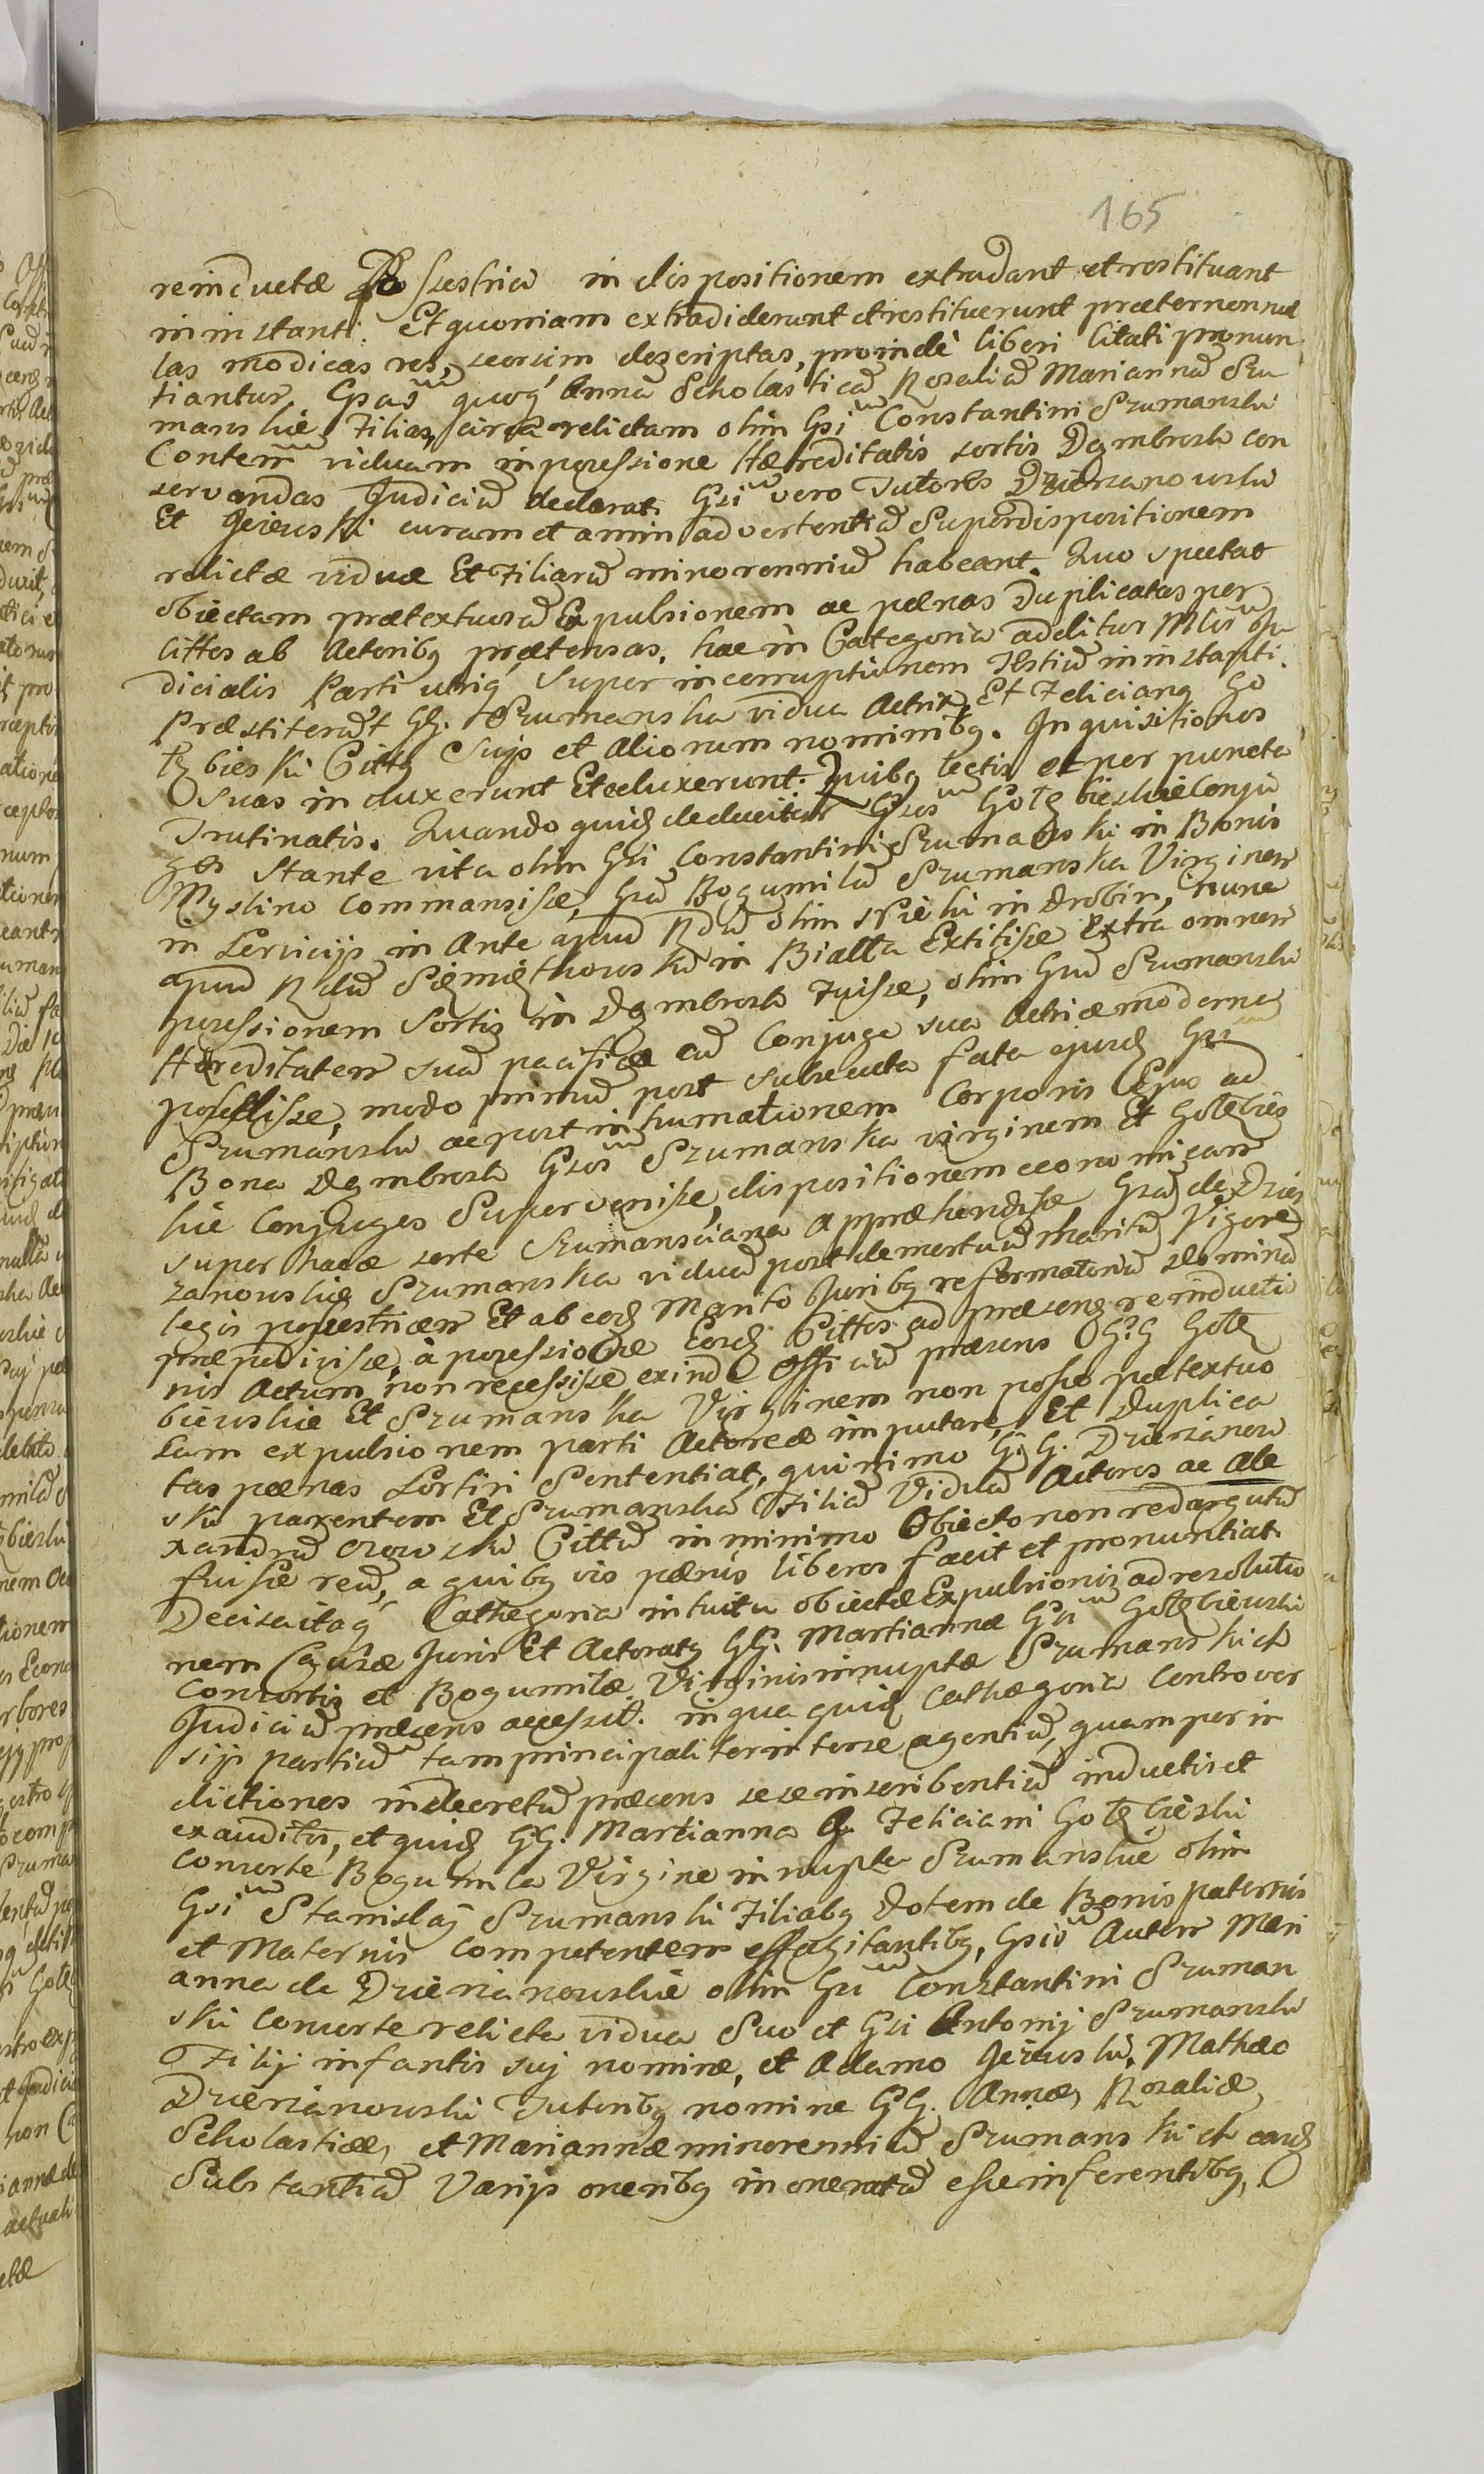 165
reinductæ Possestriæ in dispositionem extradant et restituant
in instanti. Et quoniam extradiderunt et restituerunt præter nonnul
las modicas res, seorsim descriptas, proindè liberi Citati pronun
tiantur. Gsas quoq Anna Scholasticã Rosaliã Mariannã Szu
manskie Filias, circa relictam olim Gsi Constantini Szumanski
Contem viduam in possessione Hæreditatis sortis Dęmbrosk con
servandas Judiciũ declarat. Gsi vero Tutores Dzierzanowski
Et Jeiewski curam et animadvertentiã Super dispositionem
relictæ viduæ Et Filiarũ minorenniũ habeant. Quo spectat
obiectam prætextuosã Expulsionem ac pœnas Duplicatas per
Cittos ab Actoribq prætensas, hac in Categoria additur Mlis Ju
dicialis Parti utriq Super incorruptionem Testiũ in instanti.
Præstiterũt GG. Szumanska vidua Actrix Et Felicianq Go
łębieski Cittq Suis et Aliorum nominibq. Inquisitiones
suas induxerunt Et eduxerunt. Quibq lectis et per puncta
Trutinatis. Quando quidẽ deducitur Gsos Gołębieskie Conju
ges Stante vita olim Gsi Constantini Szumanski in Bonis
Myslino Commansisse, Gsã Bogumilã Szumanska Virginem
in Servicijs in Ante apud Rdũ olim in Drobin, nunc
apud Rdũ in Bialla Extitisse Extra omnem
possessionem Sortis in Dęmbrosk Fuisse, olim Gsũ Szumanski
Hæreditatem suã pacifice cũ Conjuge sua Actrice moderna
possedisse, modo primũ post subsecuta fata ejusdẽ Gsi
Szumanski ac post inhumationem Corporis Ejus ad
Bona Dęmbrosk Gsos Szumanska virginem Et Gołębies
kie Conjuges Supervenisse, dispositionem œconomicam
super hacce sorte Szumansciana Appræhendisse Gsã de Dzier
zanowskie Szumanska viduã post demortuũ Maritũ Vigore
legis possestricem Et ab eodẽ Marito Juribq reformatoriũ dominũ
præpedivisse, à possessione Eosdẽ Cittos ad præsens reinductio
nis Actum non recessisse exinde Officiũ præsens GG Gołę
biewskie Et Szumanska Virginem non posse prætextuo
sam expulsionem parti Actoreæ imputare, Et Duplica
tas pœnas Sortiri Sententiat, quinimo GG. Dzierzanow
ski parentem Et Szumanska Filiã Viduã Actores ac Ale
xandrũ Cittũ in minimo Obiecto non redargutũ
fuisse reũ, a quibq vis pœnis liberos facit et pronuntiat.
Decisa itaq Cathegoria intuitu obiectæ Expulsionis ad resolutio
nem Causæ Juris Et Actoratq GG. Martiannæ Gsi Gołębiewski
Consortis et Bogumilæ Virginis innuptæ Szumanskich
Judiciũ præsens accessit. in qua quidẽ Cathegoria Controver
sijs partiũ tam principaliter inter se agentiũ, quam per in
dictiones in decretũ præsens sese inscribentiũ inductis et
exauditis, et quidẽ GG. Martianna G. Feliciani Gołębieski
consorte Bogumila Virgine innupta Szumanskie olim
Gsi Stanislaj Szumanski Filiabq Dotem de Bonis paternis
et Maternis competentem effagitantibq, Gsis Autem Mari
anna de Dzierzanowskie olim Gsi Constantini Szuman
ski consorte relicta vidua Suo et Gsi Antonij Szumanski
Filij infantis suj nomine, et Adamo Jeiewski, Mathæo
Dzierzanowski Tutoribq nomine GG. Annæ, Rozaliæ,
Scholasticæ, et Mariannæ minorenniũ Szumanskich eandẽ
Substantiã Varijs oneribq inoneratã esse inferentibq,